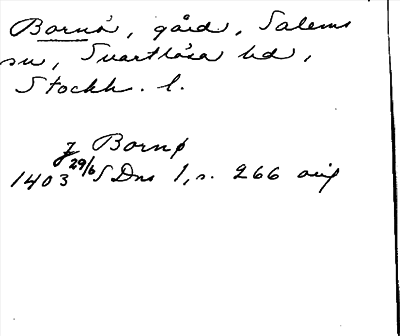 Bornö, gård, Salems
sn, Svartlösa hd,
Stockh. l.
J Bornø
1403 29/6 SDns 1, s. 266 orig